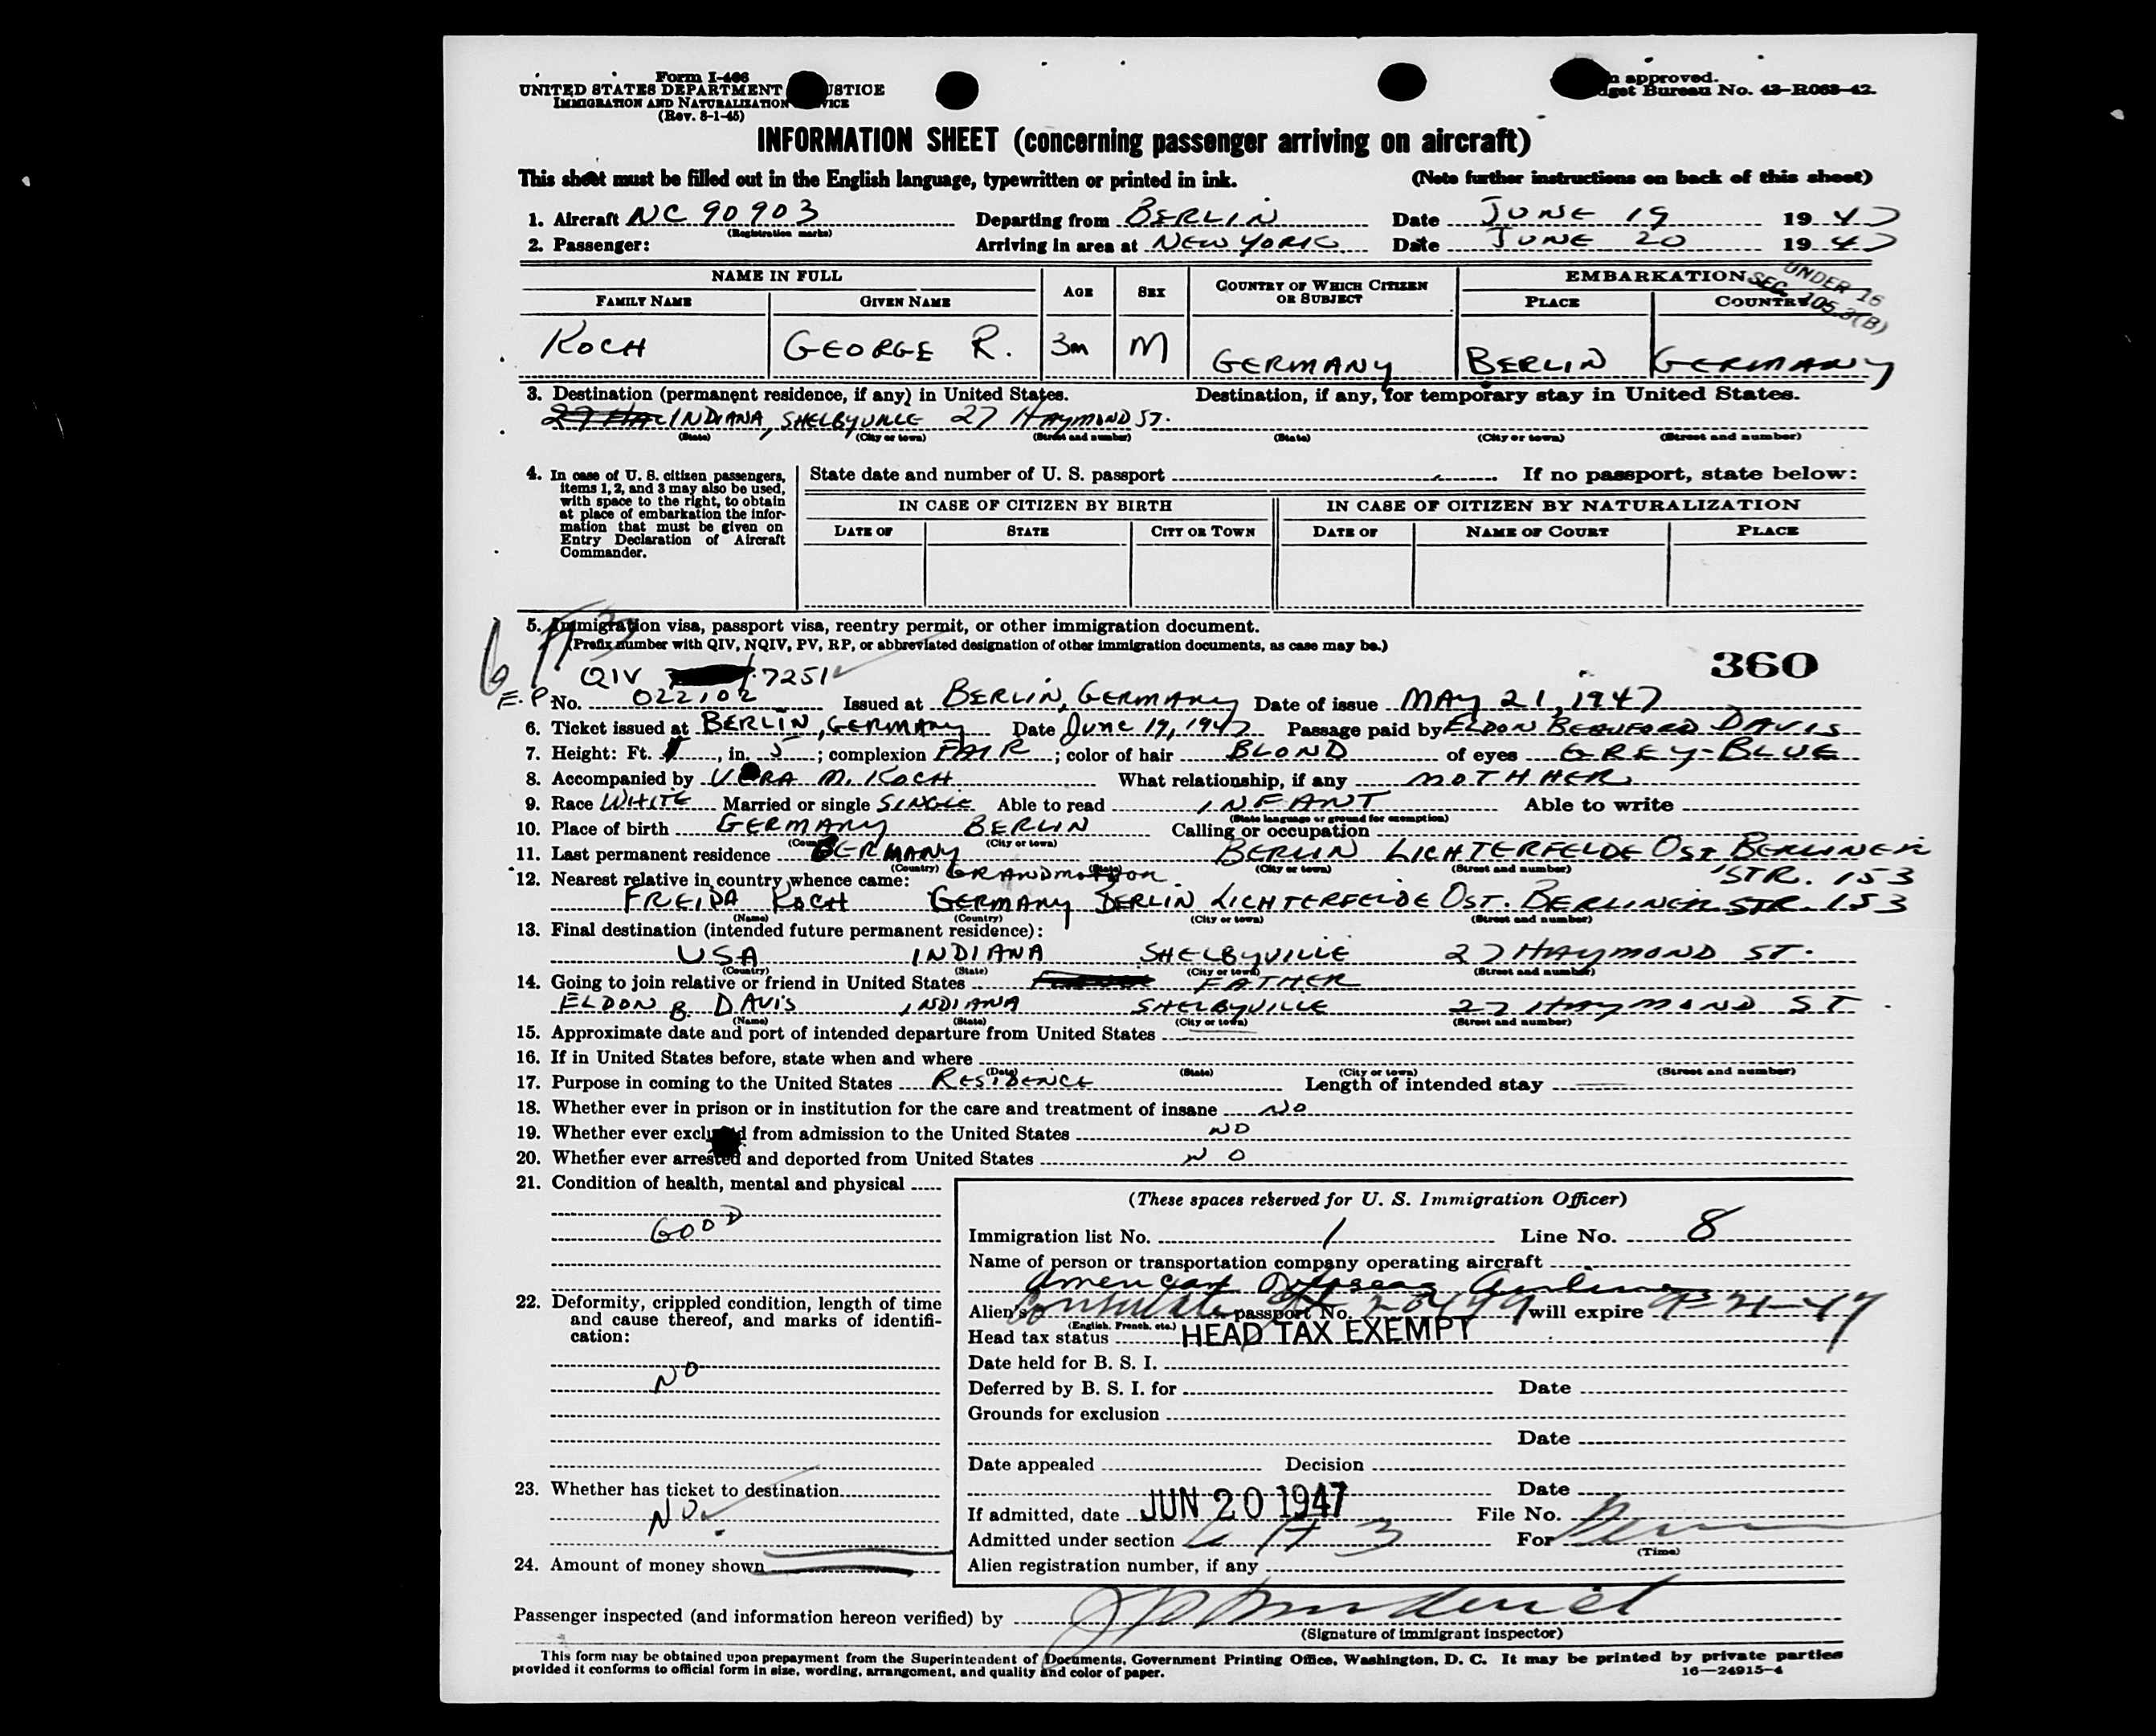 Form I-466
UNITED STATES DEPARTMENT JUSTICE
IMMIGRATION AND NATURALIZATION
(Rev. 8-1-45)
approved.
Bureau No. 43-R063-42.
INFORMATION SHEET (concerning passenger arriving on aircraft)
This sheet must be filled out in the English language, typewritten or printed in ink. (Note further instructions on back of this sheet)
1. Aircraft NC 90903 Departing from BERLIN Date JUNE 19 1947
(Registration marks)
2. Passenger: Arriving in area at NEW YORK Date JUNE 20 1947
NAME IN FULL AGE SEX COUNTRY OF WHICH CITIZEN OR SUBJECT EMBARKATION
UNDER 16
SEC. 105.3(B)
FAMILY NAME GIVEN NAME PLACE COUNTRY
KOCH GEORGE R. 3m M GERMANY BERLIN GERMANY
3. Destination (permanent residence, if any) in United States. Destination, if any, for temporary stay in United States.
INDIANA, SHELBYVILLE 27 HAYMOND ST.
(State) (City or town) (Street and number) (State) (City or town) (Street and number)
4. In case of U. S. citizen passengers, items 1, 2, and 3 may also be used, with space to the right, to obtain at place of embarkation the information that must be given on Entry Declaration of Aircraft Commander.
State date and number of U. S. passport If no passport, state below:
IN CASE OF CITIZEN BY BIRTH IN CASE OF CITIZEN BY NATURALIZATION
DATE OF STATE CITY OR TOWN DATE OF NAME OF COURT PLACE
5. Immigration visa, passport visa, reentry permit, or other immigration document.
(Prefix number with QIV, NQIV, PV, RP, or abbreviated designation of other immigration documents, as case may be.)
360
QIV 7251
E.P. No. 022102 Issued at BERLIN, GERMANY Date of issue MAY 21, 1947
6. Ticket issued at BERLIN, GERMANY Date June 19, 1947 Passage paid by ELDON BEAUFORD DAVIS
7. Height: Ft. , in. 5 ; complexion FAIR ; color of hair BLOND of eyes GREY-BLUE
8. Accompanied by VERA M. KOCH What relationship, if any MOTHHER
9. Race WHITE Married or single SINGLE Able to read INFANT Able to write
(State language or ground for exemption)
10. Place of birth GERMANY BERLIN Calling or occupation
(City or town)
11. Last permanent residence GERMANY BERLIN LICHTERFELDE OST BERLINER STR. 153
(Country) (State) (City or town) (Street and number)
12. Nearest relative in country whence came: GRANDMOTHER
FREIDA KOCH GERMANY BERLIN LICHTERFELDE OST. BERLINER STR. 153
(Name) (Country) (City or town) (Street and number)
13. Final destination (intended future permanent residence):
USA INDIANA SHELBYVILLE 27 HAYMOND ST.
(Country) (State) (City or town) (Street and number)
14. Going to join relative or friend in United States FATHER
ELDON B. DAVIS INDIANA SHELBYVILLE 27 HAYMOND ST.
(Name) (State) (City or town) (Street and number)
15. Approximate date and port of intended departure from United States
16. If in United States before, state when and where
(Date) (State) (City or town) (Street and number)
17. Purpose in coming to the United States RESIDENCE Length of intended stay
18. Whether ever in prison or in institution for the care and treatment of insane NO
19. Whether ever excluded from admission to the United States NO
20. Whether ever arrested and deported from United States NO
21. Condition of health, mental and physical
GOOD
22. Deformity, crippled condition, length of time and cause thereof, and marks of identification:
NO
23. Whether has ticket to destination
NO
24. Amount of money shown
(These spaces reserved for U. S. Immigration Officer)
Immigration list No. 1 Line No. 8
Name of person or transportation company operating aircraft
American Overseas Airlines
Alien's Consulate passport No. will expire 9-21-47
(English, French, etc.)
Head tax status HEAD TAX EXEMPT
Date held for B. S. I.
Deferred by B. S. I. for Date
Grounds for exclusion
Date
Date appealed Decision
Date
If admitted, date JUN 20 1947 File No.
Admitted under section 6 A 3 For
(Time)
Alien registration number, if any
Passenger inspected (and information hereon verified) by
(Signature of immigrant inspector)
This form may be obtained upon prepayment from the Superintendent of Documents, Government Printing Office, Washington, D. C. It may be printed by private parties
provided it conforms to official form in size, wording, arrangement, and quality and color of paper. 16—24915-4